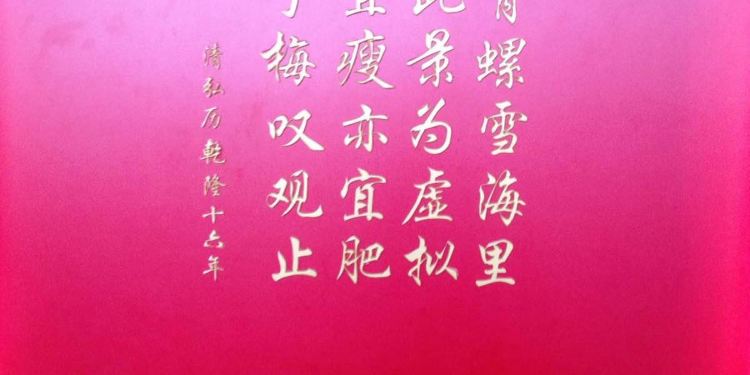 青螺雪海里
此景为虚拟
宜瘦亦宜肥
于梅叹观止
清弘历乾隆十六年